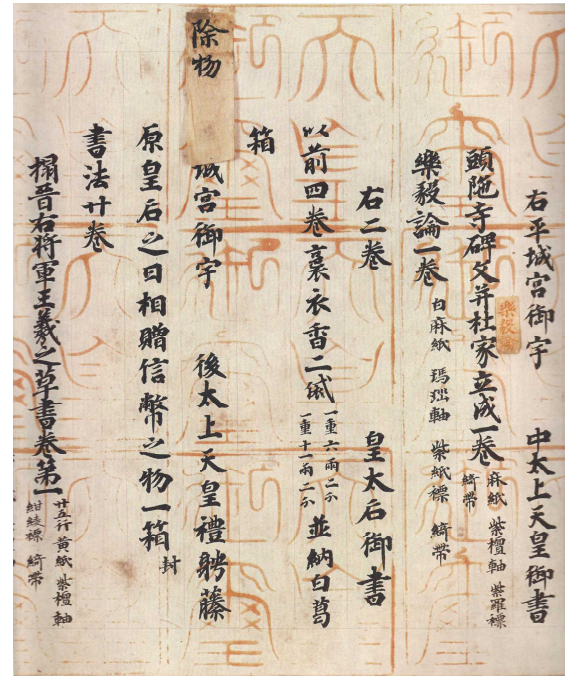 右平城宮御宇　中太上天皇御書
頭陁寺碑文并杜家立成一卷 麻紙 紫檀軸 紫羅褾
綺帶
樂毅論
樂毅論一卷 白麻紙 瑪瑙軸 紫紙褾 綺帶
右二卷　皇太后御書
以前四卷 裛衣香二袋 一重六兩二分 一重十一兩二分 並納白葛
箱
除物
城宮御宇　後太上天皇禮聘藤
原皇后之日相贈信幣之物一箱 封
書法廿卷
搨晉右將軍王羲之草書卷第一 廿五行 黃紙 紫檀軸
紺綾褾 綺帶